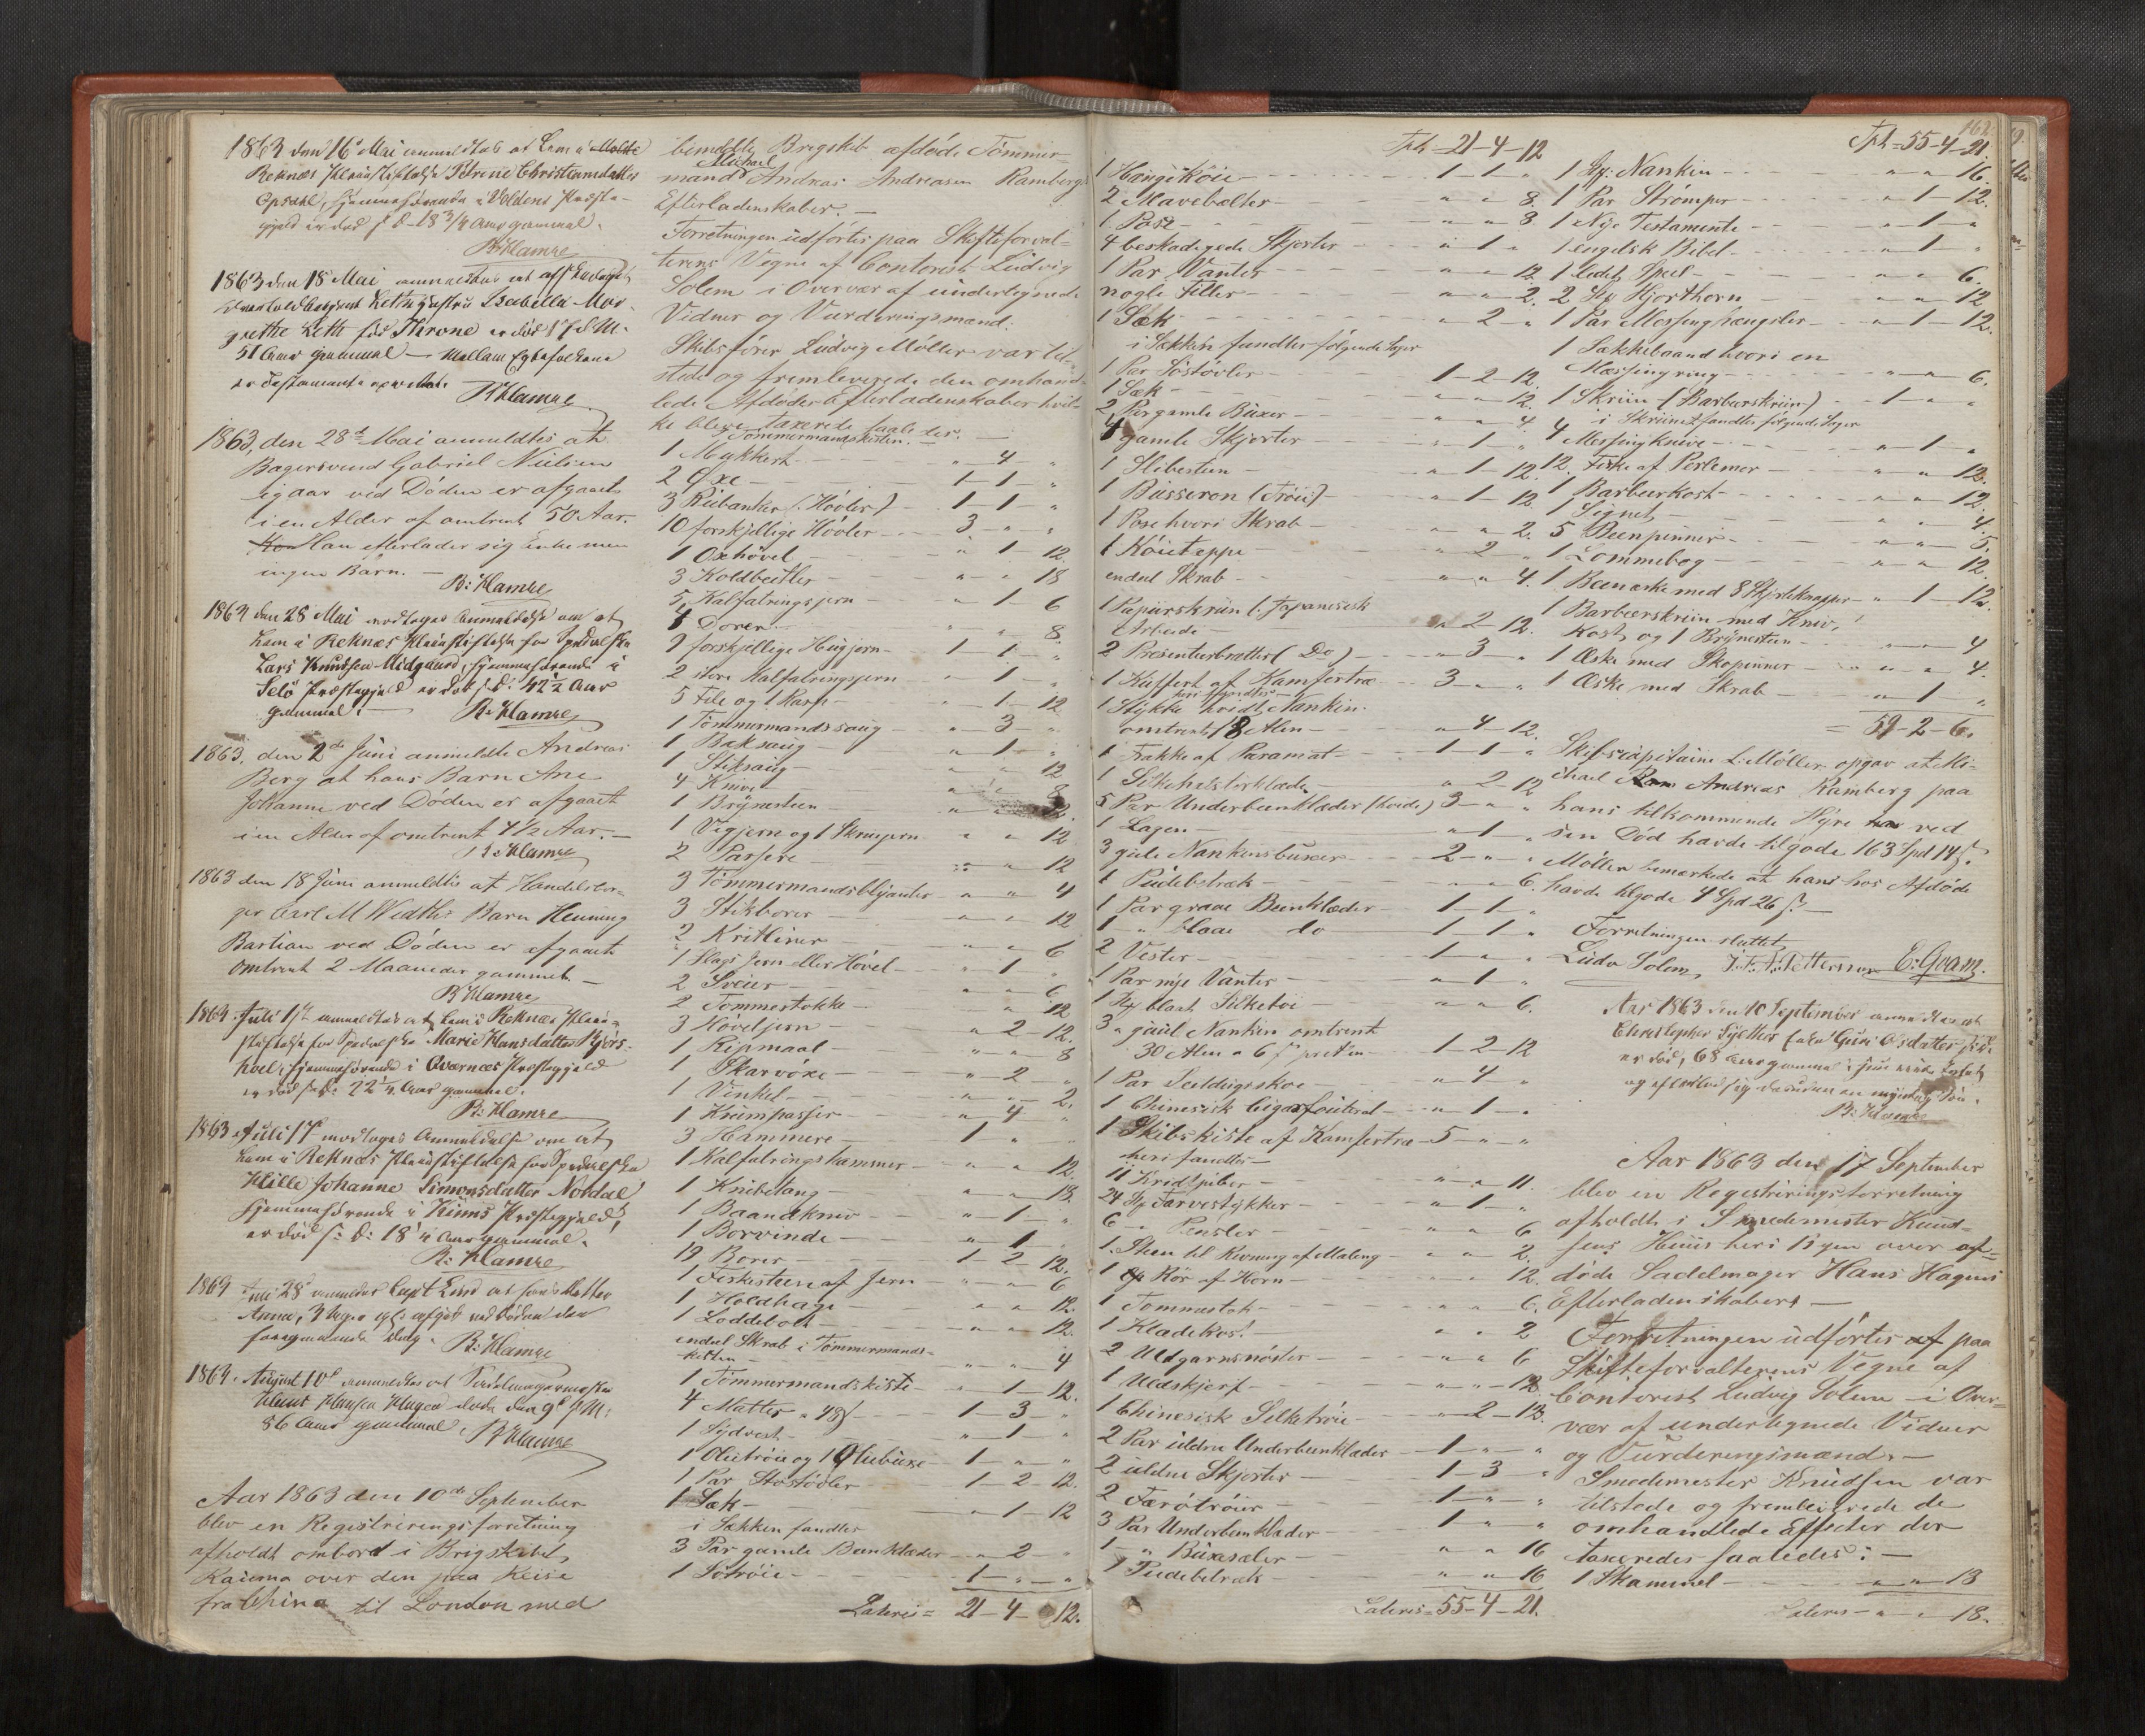 1863 den 16 Mai anmeldtes at Lem i
Reknæs Pleiestiftelse Petrine Christiansdatter
Opsahl, hjemmehørende i Voldens Præste-
gjæld er død s. D. 18 3/4 Aar gammel.
R: Klamre
1863 den 18 Mai anmeldtes at afskediget
Leth Hustru Isabella Mar-
grethe Leth fød Throne er død
51 Aar gammel — Mellem Egtefolkene
er Testamente oprettet.
R Klamre
1863, den 28de Mai anmeldtes at
Bagersvend Gabriel Nielsen
igaar ved Døden er afgaaet
i en Alder af omtrent 50 Aar.
Han efterlader sig Enke men
ingen Barn. —
R: Klamre
1863 den 28 Mai modtages Anmeldelse om at
Lem i Reknæs Pleiestiftelse for Spedalske
Lars Knudsen Midgaard, hjemmehørende i
Selø Præstegjæld er død s. D. 42 1/2 Aar
gammel. —
R: Klamre
1863, den 2de Juni anmeldte Andreas
Berg at hans Barn Ane
Johanne ved Døden er afgaaet
i en Alder af omtrent 4 1/2 Aar. —
R: Klamre
1863 den 18 Juni anmeldtes at Handelsbor-
ger Carl M Wedths Barn Henning
Bastian ved Døden er afgaaet
omtrent 2 Maaneder gammelt. —
R Klamre
1863. Juli 1ste anmeldtes at Lem i Reknæs Pleie-
stiftelse for Spedalske Marie Hansdatter
hjemmehørende i Averøens Præstegjæld
er død s. D. 22 1/4 Aar gammel.
R: Klamre
1863 Juli 17 modtages Anmeldelse om at
Lem i Reknæs Pleiestiftelse for Spedalske
Hille Johanne Simonsdatter Nordal
hjemmehørende i Kinns Præstegjæld,
er død s: D: 18 1/4 Aar gammel.
R: Klamre
1863 Juli 28 anmelder Capt Lund at hans Datter
Anna, 3 Uger gl. afgik ved Døden den
foregaaende Dag.
R: Klamre
1863. August 10de anmeldtes at Sadelmagermester
Hans Hansen Hagen døde den 9de
86 Aar gammel
R Klamre
Aar 1863 den 10de September
blev en Registreringsforretning
afholdt ombord i Brigskibet
Rauma over den paa Reise
fra China til London med
bemeldte Brigskib afdøde Tømmer-
Michael
mand Andreas Andreasen Rambergs
Efterladenskaber. —
Forretningen udførtes paa Skifteforval-
terens Vegne af Contorist Ludvig
Solem i Overvær af undertegnede
Vidner og Vurderingsmænd.
Skibsfører Ludvig Møller var til-
stede og fremleverede den omhand-
lede Afdødes Efterladenskaber hvil-
ke bleve taxerede saaledes. —
Tømmermandskisten. —
1 Mukkert — " — 4 — "
2 Øxe — 1 — 1 — "
3 Rubanker (Høvler) — 1 — 1 — "
10 forskjellige Høvler — 3 — " — "
1 Oxhøvel — " — 1 — 12.
3 Koldbeitler — " — " — 18
5 Kalfatringsjern — " — 1 — 6
1 Dorer — " — " — 8.
9 forskjellige Hugjern — 1 — 1 — "
2 store Kalfatringsjern — " — 1 — "
5 File og 1 Rasp — " — 1 — 12
1 Tømmermandssaug — " — 3 — "
1 Baksaug — " — 1 — "
1 Stiksaug — " — " — 12
4 Knive — " — " — 8
1 Brynesteen — " — " — 12.
1 Vigjern og 1 Skruejern — " — " — 12
2 Passere — " — " — 12
3 Tømmermandsblyanter — " — " — 4
3 Stikborer — " — " — 12
2 Kritliner — " — " — 6
1 Slags Jern eller Høvel — " — 1 — "
2 Sveier — " — " — 6
2 Tommestokke — " — " — 12
3 Høveljern — " — 2 — 12.
1 Ripmaal — " — " — 8
1 Skarvøxe — " — 2 — "
1 Vinkel — " — " — 2.
1 Krumpasser — " — 4 — "
3 Hammere — 1 — " — "
1 Kalfatringshammer — " — " — 12.
1 Knibetang — " — " — 18.
1 Baandkniv — " — 1 — "
1 Borvinde — " — 1 — "
19 Borer — 1 — 2 — 12.
1 Fiskesteen af Jern — " — " — 6
1 Holdhage — " — " — 12.
1 Loddebolt — " — " — 12.
endeel Skrab i Tømmermands-
kisten — " — " — 4
1 Tømmermandskiste — " — 1 — 12.
4 Matter a 48 s — 1 — 3 — "
1 Sydvest — " — 1 — "
1 Olietrøie og 1 Oliebuxe — 1 — " — "
1 Par Søstøvler — 1 — 2 — 12.
1 Sæk — " — 1 — 12
i Sækken fandtes
3 Par gamle Beenklæder — " — 2 — "
1 Søtrøie — 1 — " — "
Lateris = 21 — 4 — 12.
Trpt — 21 — 4 — 12
1 Hængekøie — 1 — 1 — "
2 Mavebælter — " — " — 8.
1 Pose — " — " — 8.
4 beskadigede Skjorter — " — 1 — "
1 Par Vanter — " — " — 12
nogle Filler — " — " — 2.
1 Sæk — " — 2 — "
i Sækken fandtes følgende Sager
1 Par Søstøvler — 1 — 2 — 12.
1 Sæk — " — " — 12.
2 Par gamle Buxer — " — " — 4.
4 gamle Skjorter — " — 1 — "
1 Slibesteen — " — 1 — 12
1 Busseron (Trøie) — " — 1 — 12
1 Pose hvori Skrab — " — " — 2.
1 Køietæppe — " — 2 — "
endeel Skrab — " — " — 4.
1 Papiirskriin (Japanesisk
Arbeide — " — 2 — 12.
2 Presenteerbrætter (Do) — " — 3 — "
1 Kuffert af Kamfertræ — 3 — " — "
heri fandtes —
1 Stykke hvidt Nankin
omtrent 18 Alen — " — 4 — 12.
1 Frakke af Paramat — 1 — 1 — "
1 Silkehalstørklæde — " — 2 — 12
5 Par Underbeenklæder (hvide) 3 — " — "
1 Lagen — " — 1 — "
3 gule Nankinsbuxer — 2 — " — "
1 Pudebetræk — " — " — 6.
1 Par graae Beenklæder — 1 — 1 — "
1 " blaae do — 1 — 1 — "
2 Vester — 1 — " — "
1 Par nye Vanter — " — 1 — "
1 St blaat Silketøi — " — " — 6.
3 " guul Nankin omtrent
30 Alen a 6 s pr Alen — 1 — 2 — 12
1 Par Seildugsskoe — " — 4 — "
1 Chinesisk Cigarfouteral — " — 1 — "
1 Skibskiste af Kamfertræ — 5 — " — "
heri fandtes —
11 Kridtpiber — " — " — 11.
24 St Farvestykker — " — 1 — "
6 " Pensler — " — " — 6
1 Steen til Rivning af Maling — " — " — 2.
1 Rør af Horn — " — " — 12.
1 Tommestok — " — " — 6.
1 Klædekost — " — " — 2
2 Uldgarnsnøster — " — " — 6
1 Uldskjerf — " — " — 12.
1 Chinesisk Silketrøie — " — 2 — 12.
2 Par uldne Underbeenklæder — 1 — " — "
2 uldne Skjorter — 1 — 3 — "
2 Færøtrøier — 1 — " — "
3 Par Underbeenklæder — 1 — " — "
1 " Buxesæler — " — " — 16
7 Pudebetræk — " — " — 16
Lateris = 55 — 4 — 21.
162.
Trpt = 55 — 4 — 21
1 St: Nankin — " — " — 16.
1 Par Strømper — " — 1 — 12.
1 Nye Testamente — " — 1 — "
1 engelsk Bibel — " — 1 — "
1 lidet Speil — " — " — 6.
2 St Hjorthorn — " — " — 12.
1 Par Messinghængsler — " — 1 — 12.
1 Lakkebaand hvori en
Messingring — " — " — 6.
1 Skriin (Barbeerskriin) — 1 — " — "
i Skrinet fandtes følgende Sager
4 Messingknive — " — 1 — "
12. Fiske af Perlemor — " — " — 12.
1 Barbeerkost — " — " — 12.
1 Signet — " — " — 4.
5 Beenpinner — " — " — 5.
1 Lommebog — " — " — 12.
1 Beenæske med 8 Skjorteknapper " — 1 — 12.
1 Barbeerskriin med Kniv,
Kost og 1 Brynesteen — " — " — 4
1 Æske med Skopinner — " — " — 4.
1 Æske med Skrab — " — 1 — "
= 59 — 2 — 6.
Skibscapitaine L. Møller opgav at Mi-
chael Andreas Ramberg paa
hans tilkommende Hyre ved
sin Død havde tilgode 163 Spd 14 s.
Møller bemærkede at han hos Afdøde
havde tilgode 4 Spd 26 s. —
Forretningen sluttet
Ludv Solem, J. F. A. Petterson E. Gram.
Aar 1863 den 10 September anmeldtes at
Christopher Guri Olsdatter
er død, 68 Aar gammel
og efterlod sig desuden en myndig Søn.
R: Klamre
Aar 1863 den 17 September
blev en Registreringsforretning
afholdt i Smedemester Knud-
sens Huus her i Byen over af-
døde Sadelmager Hans Hagens
Efterladenskaber. —
Forretningen udførtes paa
Skifteforvalterens Vegne af
Contorist Ludvig Solem i Over-
vær af undertegnede Vidner
og Vurderingsmænd. —
Smedemester Knudsen var
tilstede og fremleverede de
omhandlede Effecter der
taxeredes saaledes: —
1 Skammel — " — " — 18
Lateris — " — " — 18.